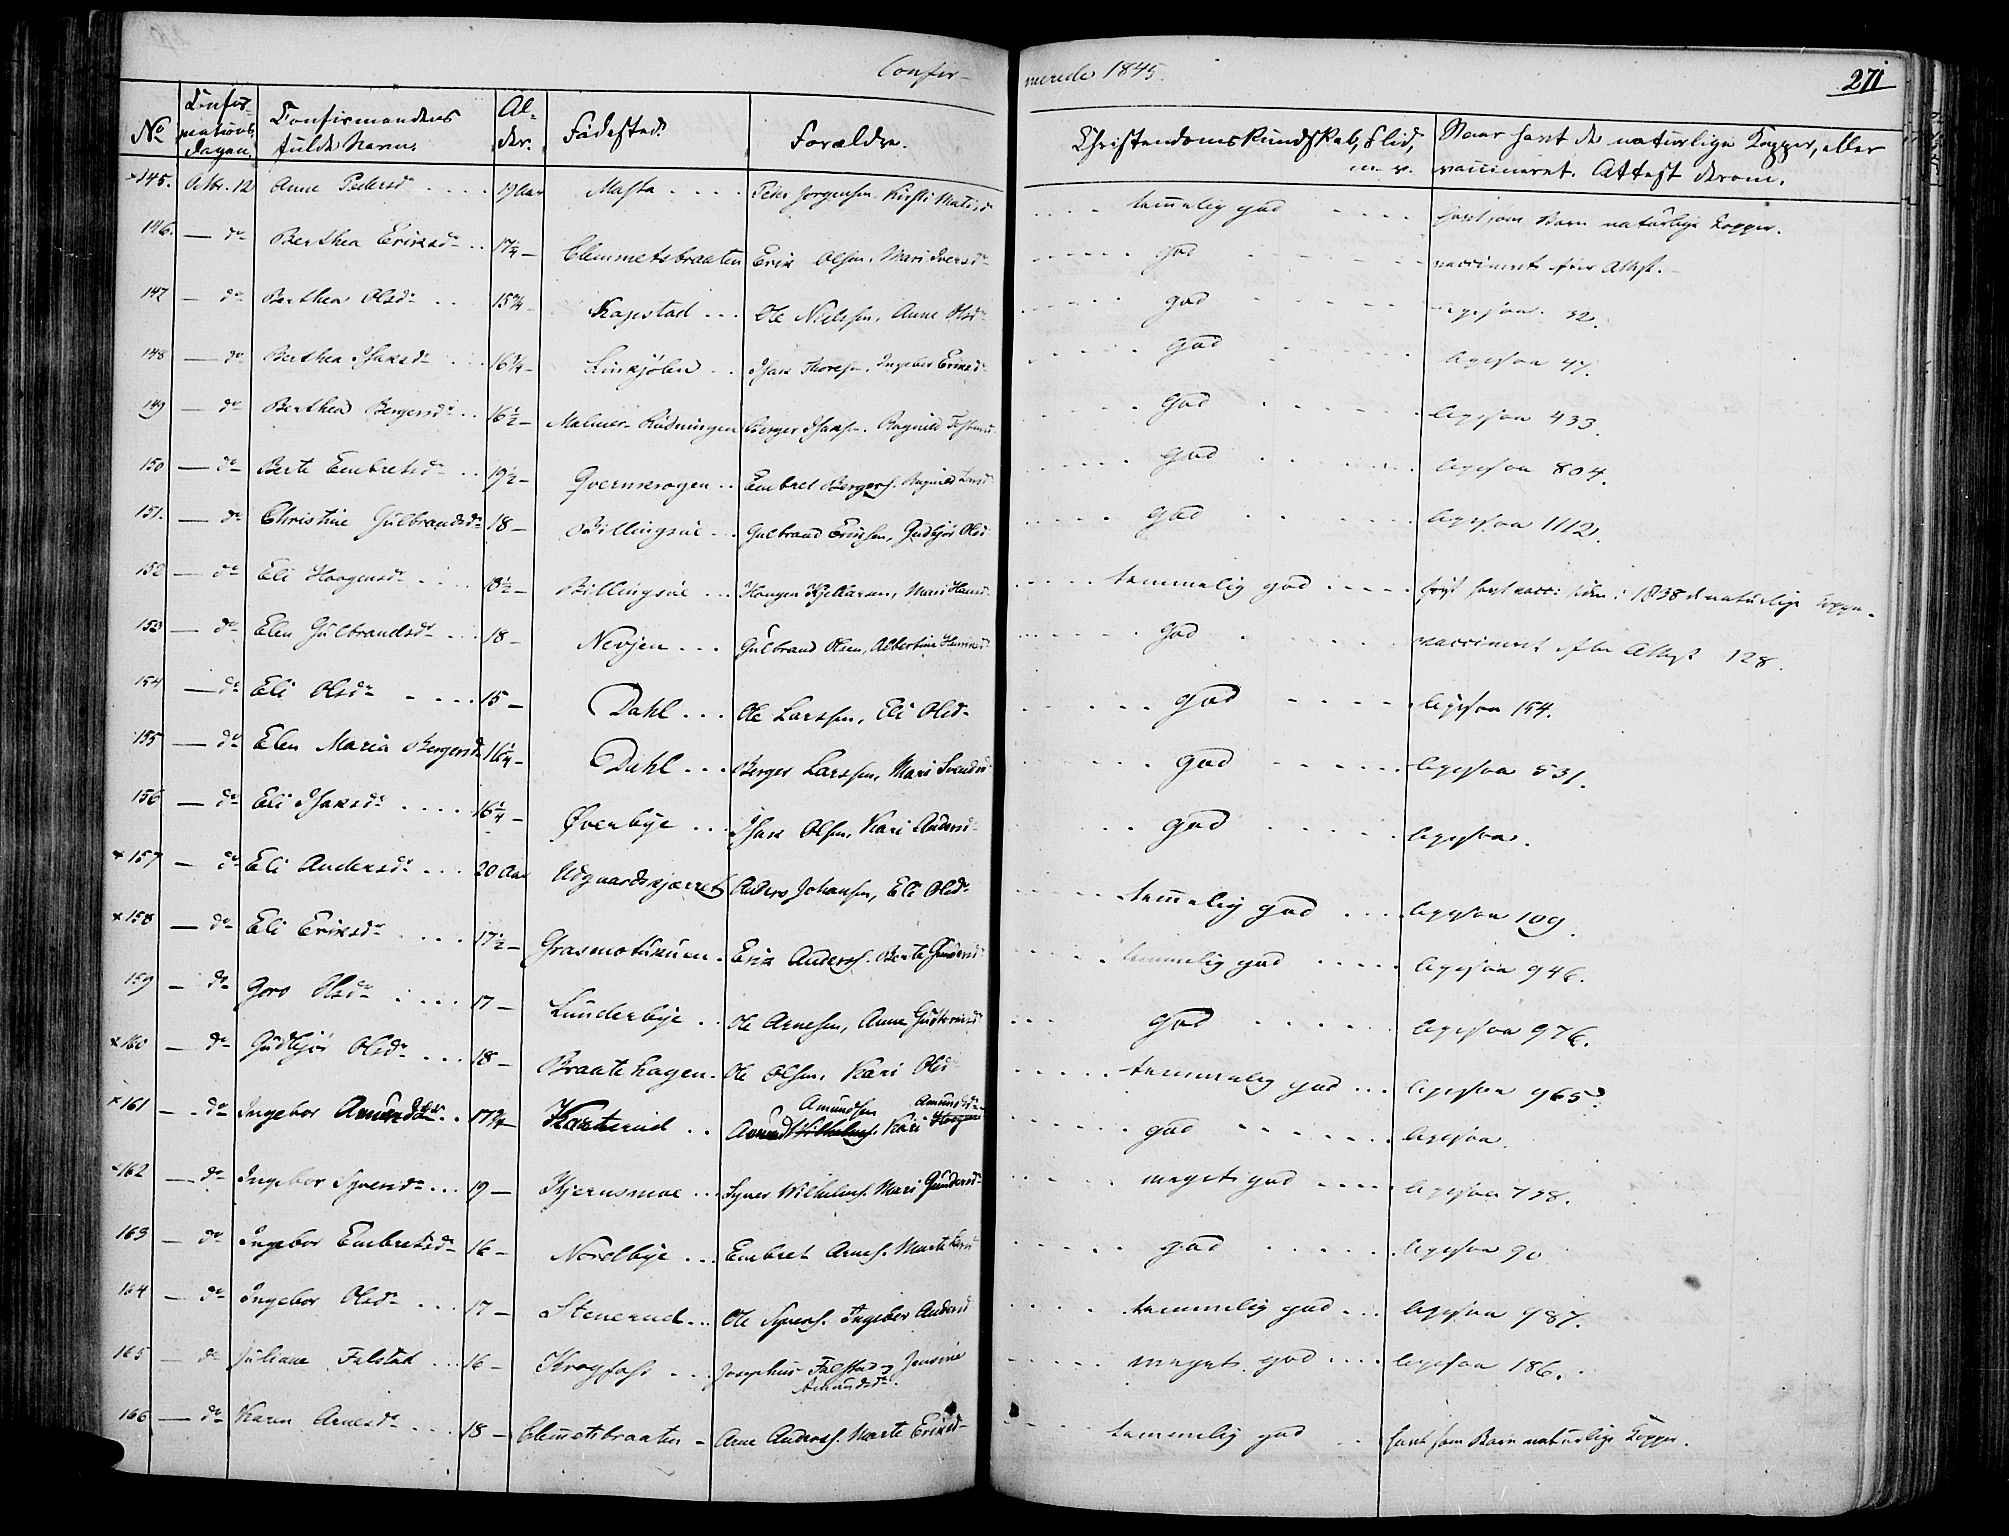 Confir-
merede 1845.
271
No Confirmations dagen. Confirmandens fulde Navn. Alder. Fødested. Forældre. Christendomskundskab, Flid, m. v. Naar havt de naturlige Kopper, eller vaccineret. Attest derom.
×145. Nbr. 12 Anne Pedersdr .... 19 Aar .... Peder Jørgensen .... temelig god .... havt som Barn naturlige Kopper.
146. — do Berthea Eriksdr .. 17¼ — Clemmetsbraaten Erik Olsen. Mari Iversdr .... god .... vaccineret efter Attest.
147 — do Berthea Olsdr .. 15¾ — Kagestad ... Ole Nielsen, Anne Olsdr .... god .... ligesaa 32.
148 — do Berthea Isaksdr .... 16¼ — .. Isak Thoresen, Ingebor Eriksdr .... god .... ligesaa 47.
149 — do Berthea Bergersdr .. 16½ — Malmer-Rudningen Berger Isaksen. Ragnild .... god .... ligesaa 433.
150 — do Berte Embretsdr .. 19½ — Qvernkrogen .. Embret Bergers. Ragnild Larsd .... god .... ligesaa 804.
151. — do Christine Gulbrandsdr 18 — Billingsøe ... Gulbrand Eriksen, Gudbjør Olsd .... god .... ligesaa 1112.
152 — do Eli Haagensdr .... 18½ — Billingsøe ... Haagen Kjeldsen, Mari Hansd .... temmelig god .... siden i 1838 de naturlige Kopper.
153 — do Elen Gulbrandsdr .... 18 — Nevjen ... Gulbrand Olsen, Albertine .... god .... vaccineret efter Attest 128.
154 — do Eli Olsdr .... 15 — Dahl ... Ole Larssen, Eli Olsdr .... god .... ligesaa 154.
155 — do Elen Maria Bergersdr 16¼ — Dahl ... Berger Larssen, Mari Svendsd .... god .... ligesaa 531.
156 — do Eli Isaksdr .... 16¼ — Øverbye ... Isak Olsen, Kari Andersd .... god .... ligesaa.
×157 — do Eli Andersdr ... 20 Aar Udgaardskjærret Anders Johansen, Eli Olsdr .... temelig god .... ligesaa 109.
×158 — do Eli Eriksdr .... 17½ — Grasmotskuen . Erik Anders. Berte Gundersd .... temmelig god .... ligesaa 946.
159 — do Goro Olsdr .... 17 — Lunderbye .. Ole Arnesen, Anne Guttormsd ... god .... ligesaa 976.
×160 — do Gudbjør Olsdr ... 18 — Braatehagen . Ole Olsen, Kari Olsd .... temmelig god ... ligesaa 965.
×161 — do Ingebor Amundsdr .. 17¾ — Kasterud .. Amund Wilhelms. Amundsen Kari Amundsdr .... god .... ligesaa.
×162 — do Ingebor Syversdr ... 19 — Kjernsmoe ... Syver Wilhelms. Mari Gundersdr .... meget god .... ligesaa 738.
163 — do Ingebor Embretsdr 16 — Nordbye ... Embret Arnes. Marte Larsd .... god .... ligesaa 90
164 — do Ingebor Olsdr ... 17 — Stenerud ... Ole Syvers. Ingebor Andersd .... temmelig god ... ligesaa 987.
165 — do Juliane Falstad ... 16 — Krogfosi ... Josephus Falstad og Jensine Amundsdr. .... meget god .... ligesaa 186.
166 — do Karen Arnesdr .... 18 — Clemetsbraaten — Arne Anders. Marte Eriksd .... temmelig god .. havt som Barn naturlige Kopper.